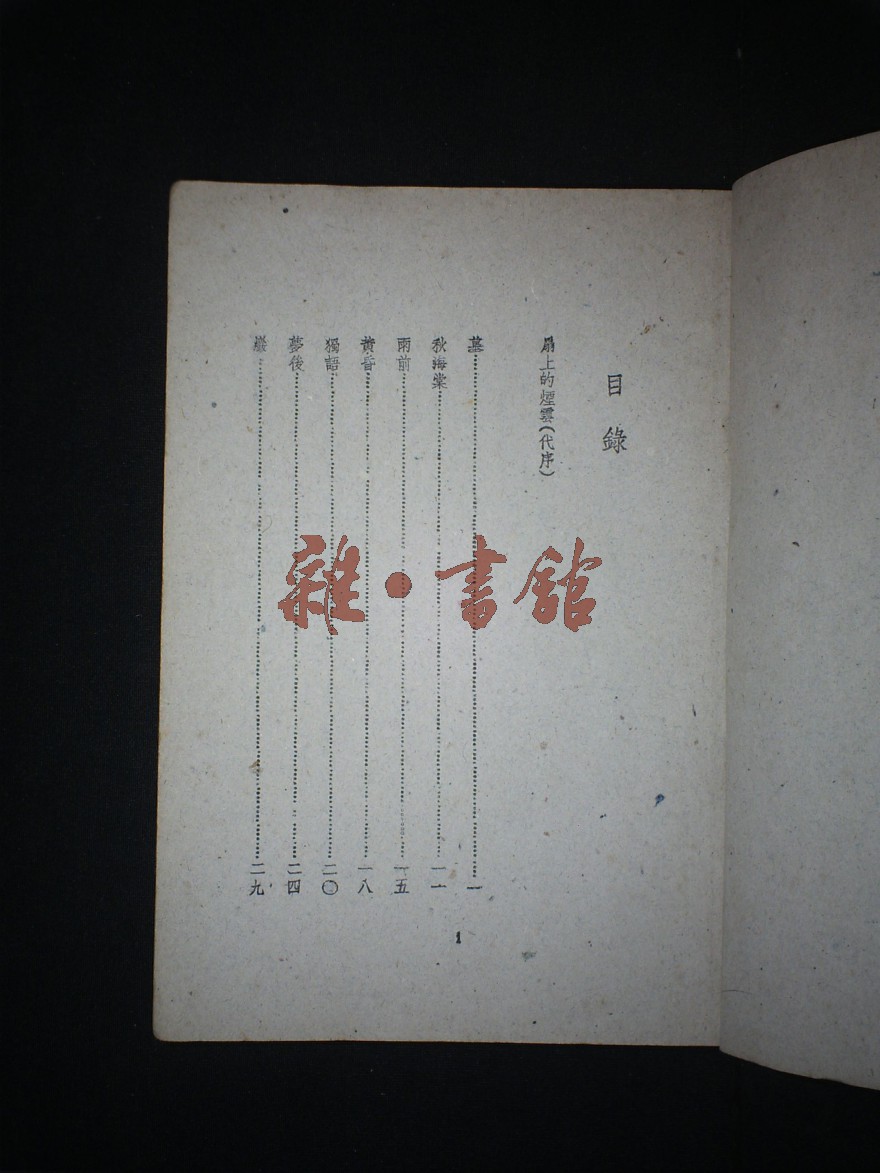 目錄
扇上的煙雲（代序）
墓……一
秋海棠……一一
雨前……一五
黃昏……一八
獨語……二〇
夢後……二四
巖……二九
1
雜·書館